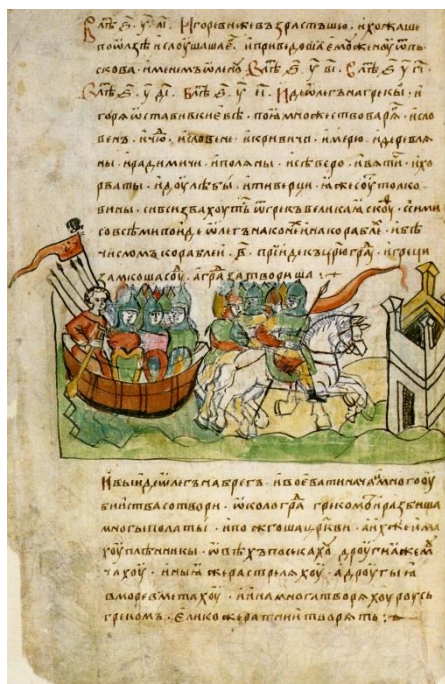 В лѣт҃ ѕ҃ у҃ аі҃. Игоревиже възрастъшю. ихожаше
поѡлзѣ ислоушаше е҃. ипреведоша емоу женоу ѿпь
скова. именемъ ѡленоу. В лѣт҃ ѕ҃ у҃ ві҃. В лѣт҃ ѕ҃ у҃ гі҃.
В лѣт҃ ѕ҃ у҃ ді҃. В лѣт҃ ѕ҃ у҃ еі҃. Иде ѡлегъ на грекы. и
горѧ ѡставивъ киевѣ. поꙗ множество варѧ. исло
венъ. и чю. исловене. икривичи. имерю. идеревлѧ
ны. ирадимичи. иполѧны. исѣверо. ивѧти. ихо
рваты. идоулѣбы. итиверци. ꙗже соу толко
вины. сивси звахоуть ѿ грекъ великаꙗ скоу. сими
совсеми поиде ѡлегъ на конех и на кораблѣ. ибѣ
числомъ кораблеи. в҃. прїиде къ црюгра. игреци
замкоша соу. а гра затвориша
И выиде ѡлегъ на брегъ. ивоевати нача. имного оу
биїства сотвори. ѡколо гра грекомъ. иразбиша
многы полаты. ипожгоша цркви. а ихже има
хоу плѣнникы. ѡвѣхъ посекахоу дроугиа же мѫ
чахоу. иныꙗ же растрелѧхоу. а дроугыꙗ
в море вметахоу. иина многа творѧхоу роусь
грекомъ. елико же ратнии творѧть